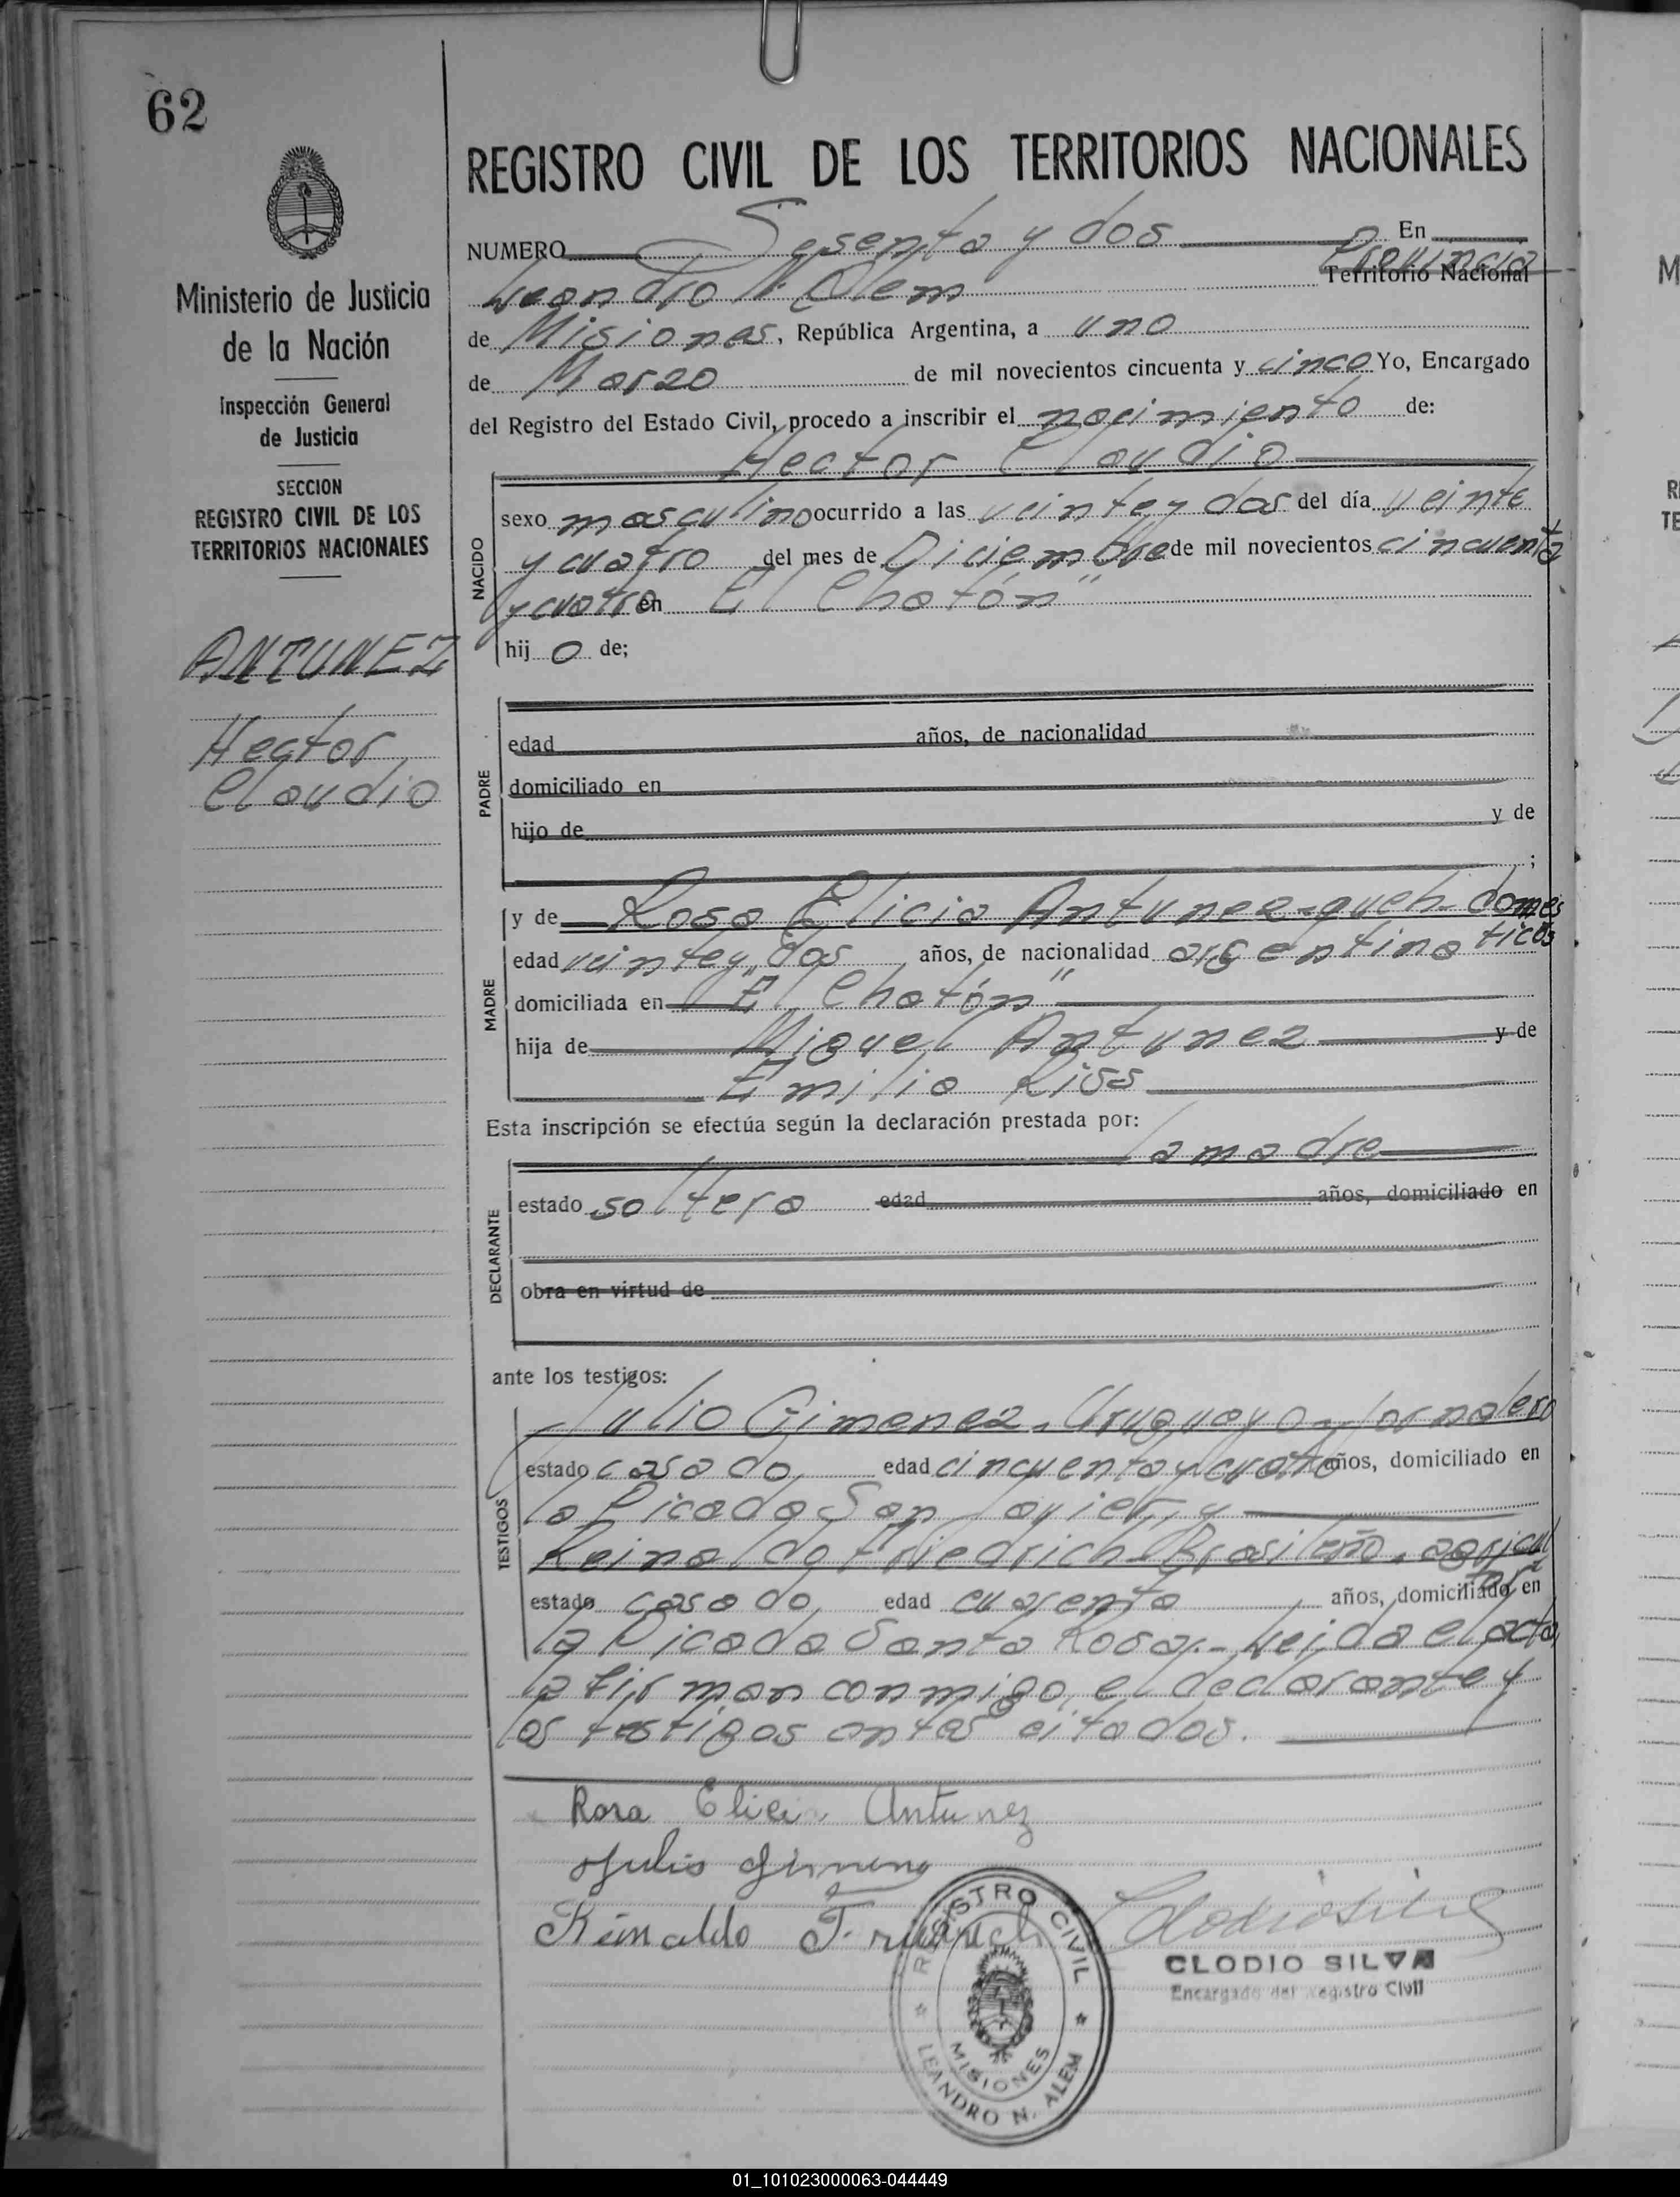 62
REGISTRO CIVIL DE LOS TERRITORIOS NACIONALES
Ministerio de Justicia
de la Nación
Inspección General
de Justicia
SECCION
REGISTRO CIVIL DE LOS
TERRITORIOS NACIONALES
ANTUNEZ
Hector
Claudio
NUMERO Sesenta y dos En
Leandro N. Alem Provincia Territorio Nacional
de Misiones, República Argentina, a uno
de Marzo de mil novecientos cincuenta y cinco Yo, Encargado
del Registro del Estado Civil, procedo a inscribir el nacimiento de:
Hector Claudio
NACIDO
sexo masculino ocurrido a las veinte y dos del día veinte
y cuatro del mes de Diciembre de mil novecientos cincuenta
y cuatro en "El Chatón"
hij o de;
PADRE
edad años, de nacionalidad
domiciliado en
hijo de y de
;
MADRE
y de Rosa Elicia Antunez - queh. domes
ticos
edad veinte y dos años, de nacionalidad argentina
domiciliada en "El Chatón"
hija de Miguel Antunez y de
Emilia Ríos
Esta inscripción se efectúa según la declaración prestada por:
la madre
DECLARANTE
estado soltera edad años, domiciliado en
obra en virtud de
ante los testigos:
TESTIGOS
Julio Gimenez - Uruguayo - Jornalero
estado casado, edad cincuenta y cuatro años, domiciliado en
la Picada San Javier, y
Reinaldo Friedrich - Brasileño - agricul
tor
estado casado, edad cuarenta años, domiciliado en
la Picada Santa Rosa.- Leída el acta
la firman conmigo, el declarante y
los testigos antes citados.
Rosa Elicia Antunez
Julio
Reinaldo Friedrich
REGISTRO CIVIL
MISIONES
LEANDRO N. ALEM
Clodio Silva
CLODIO SILVA
Encargado del Registro Civil
01_101023000063-044449